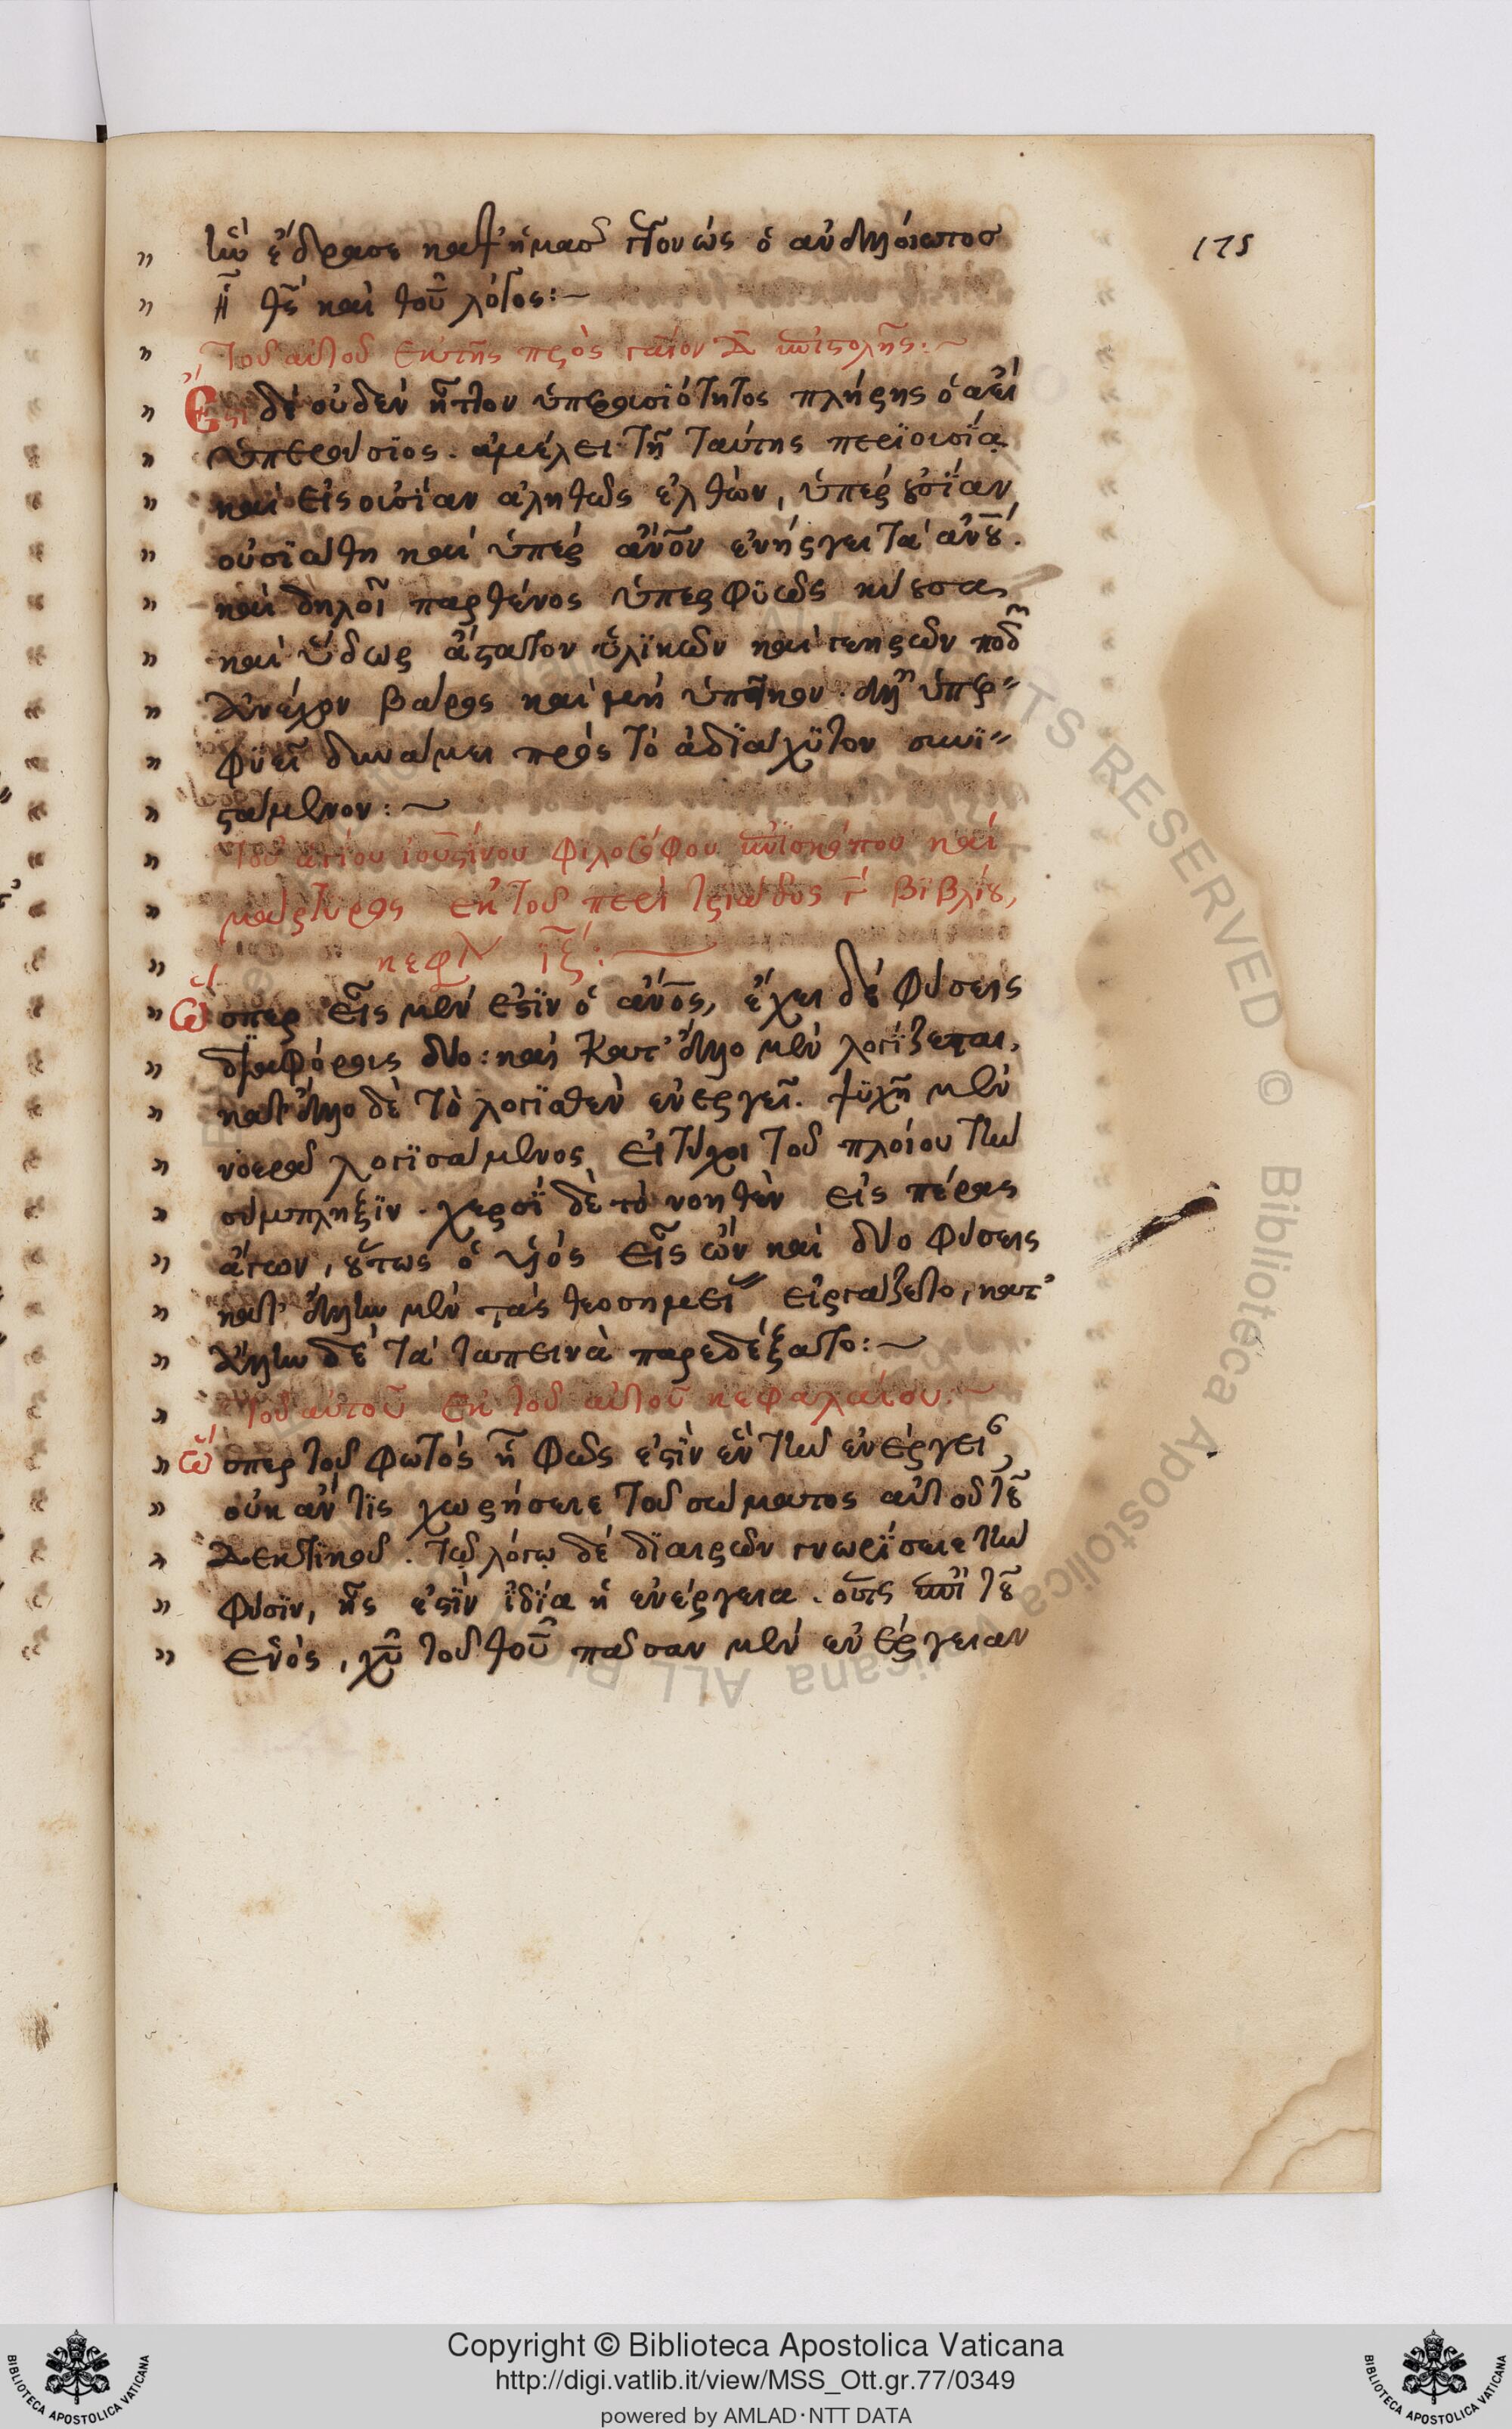 ἣν ἔδρασε καθ' ἡμᾶς γεγονὼς ὁ ἀναλλοίωτος
175
ᾗ θς καὶ θυ λόγος:~
Τοῦ αὐτοῦ ἐκ τῆς πρὸς γάϊον δ ἐπιστολῆς:~
Ἔστι δὲ οὐδὲν ἧττον ὑπερουσιότητος πλήρης ὁ ἀεὶ
ὑπερούσιος. ἀμέλει τῇ ταύτης περϊουσίᾳ
καὶ εἰς οὐσίαν ἀληθῶς ἐλθὼν, ὑπὲρ οὐσίαν
οὐσϊώθη καὶ ὑπὲρ ἀνον ἐνήργει τὰ ἀνου.
καὶ δηλοῖ παρθένος ὑπερφϋῶς κύουσα,
καὶ ὕδωρ ἄστατον ὑλϊκῶν καὶ γεηρῶν ποδῶν
ἀνέχον βάρος καὶ μὴ ὑπεῖκον. ἀλλ' ὑπερ
φϋεῖ δυνάμει πρὸς τὸ ἀδϊάχϋτον συνϊ
στάμενον:~
Τοῦ ἁγίου ἰουστίνου φιλοσόφου ἐπϊσκόπου καὶ
μάρτυρος ἐκ τοῦ περὶ τριάδος γ βϊβλίου,
κεφλ ιζ:~
Ὥσπερ εἷς μέν ἐστϊν ὁ ἀνος, ἔχει δὲ φύσεις
δϊαφόρους δύο: καὶ κατ' ἄλλο μὲν λογϊζεται,
κατ' ἄλλο δὲ τὸ λογϊσθὲν ἐνεργεῖ. ψϋχῇ μὲν
νοερᾷ λογϊσάμενος εἰ τύχοι τοῦ πλοίου τὴν
σύμπηξϊν. χερσϊ δὲ τὸ νοηθὲν εἰς πέρας
ἄγων, οὕτως ὁ υἱὸς εἷς ὢν καὶ δύο φύσεις
κατ' ἄλλην μὲν τὰς θεοσημεί εἰργάζετο, κατ'
ἄλλην δὲ τὰ ταπεινὰ παρεδέξατο:~
Τοῦ αὐτοῦ ἐκ τοῦ αὐτοῦ κεφαλαίου:~
Ὥσπερ τοῦ φωτὸς ᾗ φῶς ἐστϊν ἓν τὴν ἐνέργει,
οὐκ ἄν τϊς χωρήσειε τοῦ σώματος αὐτοῦ τοῦ
δεκτϊκοῦ. τῷ λόγῳ δὲ δϊαιρῶν γνωρϊσειε τὴν
φύσϊν, ἧς ἐστϊν ἰδϊα ἡ ἐνέργεια. οὕτως ἐπὶ τοῦ
ἑνὸς, χυ τοῦ θυ πᾶσαν μὲν ἐνέργειαν
Copyright © Biblioteca Apostolica Vaticana
http://digi.vatlib.it/view/MSS_Ott.gr.77/0349
powered by AMLAD·NTT DATA